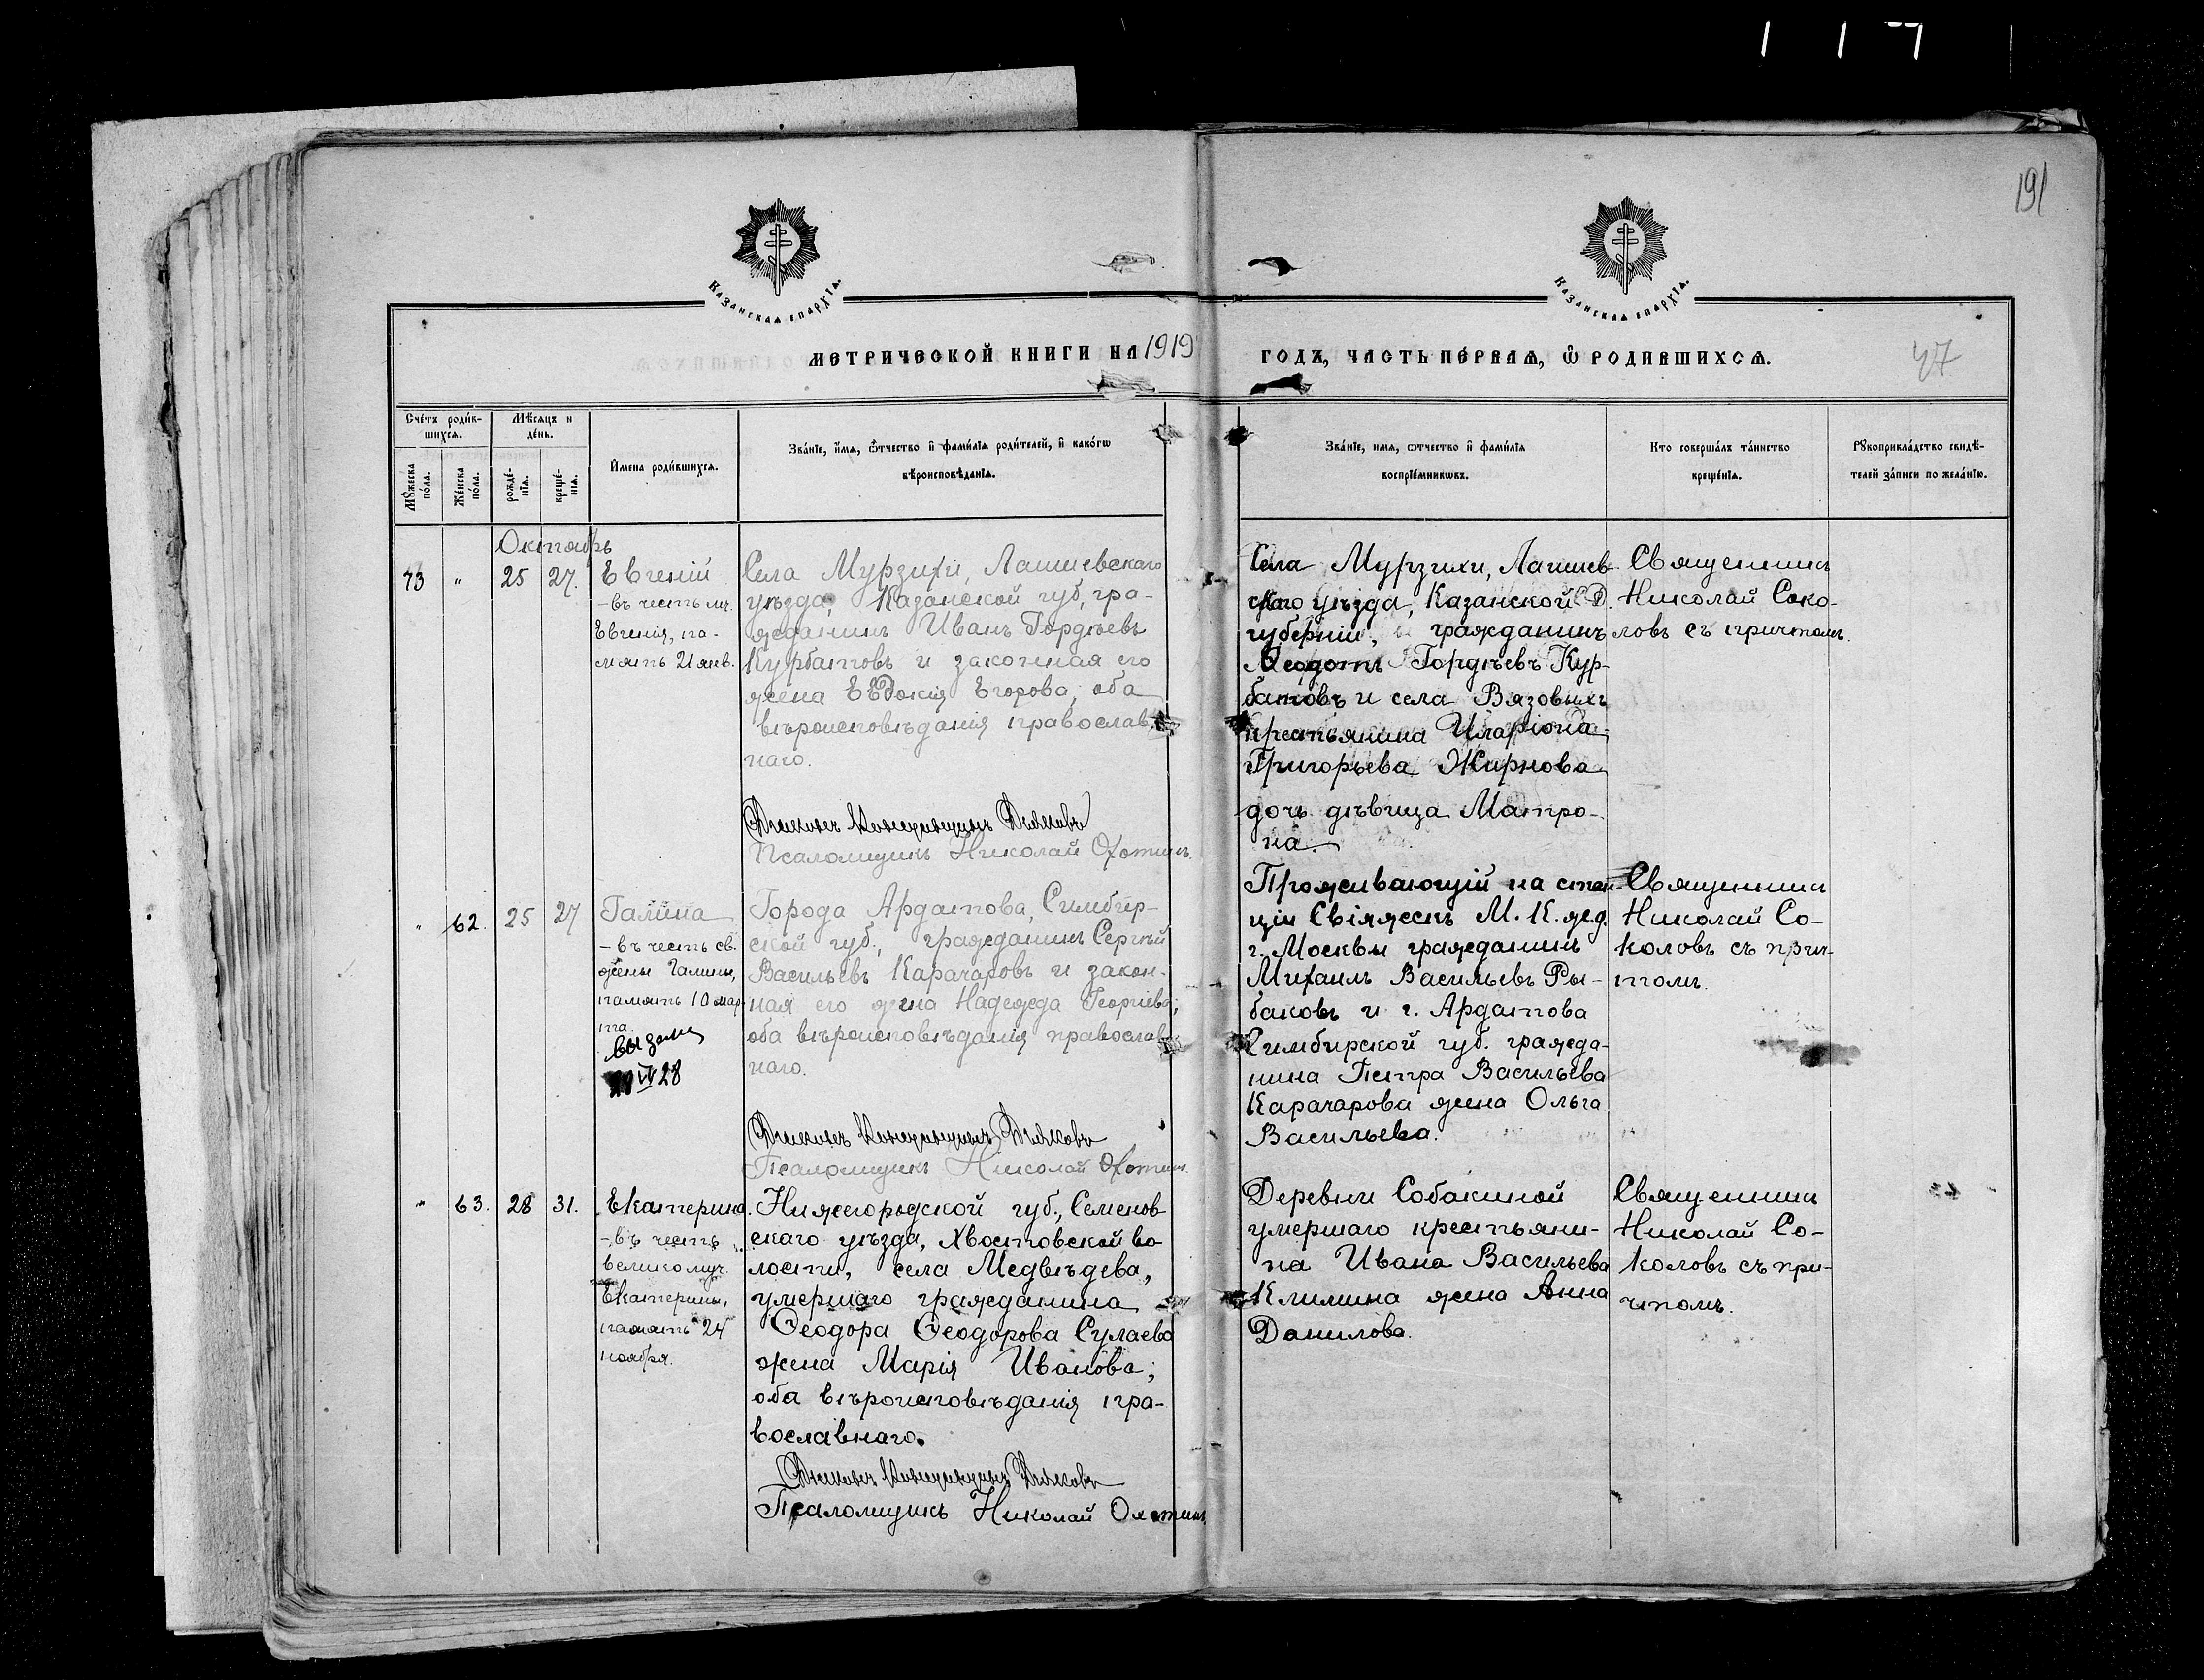 191
Казанская епархія.
Казанская епархія.
МЕТРИЧЕСКОЙ КНИГИ НА 1919
ГОДЪ, ЧАСТЬ ПЕРВАЯ, Ѿ РОДИВШИХСѦ.
47
Счетъ родив-
шихся.
Мѣсяцъ и
день.
Мужеска
пола.
Женска
пола.
рожде-
нія.
креще-
нія.
Имена родившихся.
Званіе, имя, ѿчество и фамилія родителей, и какогѡ
вѣроисповѣданія.
Званіе, имя, ѿчество и фамилія
воспріемникѡвъ.
Кто совершалъ таинство
крещенія.
Рукоприкладство свидѣ-
телей записи по желанію.
Октябрь
73 " 25 27.
Евгеній
- въ честь мч.
Евгенія, па-
мять 21 янв.
Села Мурзихи, Лаишевскаго
уѣзда, Казанской губ., гра-
жданинъ Иванъ Гордѣевъ
Курбатовъ и законная его
жена Евдокія Егорова, оба
вѣроисповѣданія православ-
наго.
Псаломщикъ Николай Охотинъ.
Села Мурзихи, Лаишев-
скаго уѣзда, Казанской
губерніи, гражданинъ
Ѳеодотъ Гордѣевъ Кур-
батовъ и села Вязовыхъ
крестьянина Иларіона
Григорьева Жирнова
дочь дѣвица Матро-
на.
Священникъ
Николай Соко-
ловъ съ причтомъ.
" 62. 25 27
Галина
- въ честь св.
жены Галины,
память 10 мар-
та.
28
Города Ардатова, Симбир-
ской губ., гражданинъ Сергѣй
Васильевъ Карачаровъ и закон-
ная его жена Надежда Георгіева;
оба вѣроисповѣданія православ-
наго.
Псаломщикъ Николай Охотинъ.
Проживающій на стан-
ціи Свіяжскъ М. К. жд.
г. Москвы гражданинъ
Михаилъ Васильевъ Ры-
баковъ и г. Ардатова
Симбирской губ. гражда-
нина Петра Васильева
Карачарова жена Ольга
Васильева.
Священникъ
Николай Со-
коловъ съ прич-
томъ.
" 63. 28 31.
Екатерина.
- въ честь
великомуч.
Екатерины,
память 24
ноября.
Нижегородской губ., Семенов-
скаго уѣзда, Хвостовской во-
лости, села Медвѣдева,
умершаго гражданина
Ѳеодора Ѳеодорова Сулаева
жена Марія Иванова;
оба вѣроисповѣданія пра-
вославнаго.
Псаломщикъ Николай Охотинъ.
Деревни Собакиной
умершаго крестьяни-
на Ивана Васильева
Климина жена Анна
Данилова.
Священникъ
Николай Со-
коловъ съ при-
чтомъ.